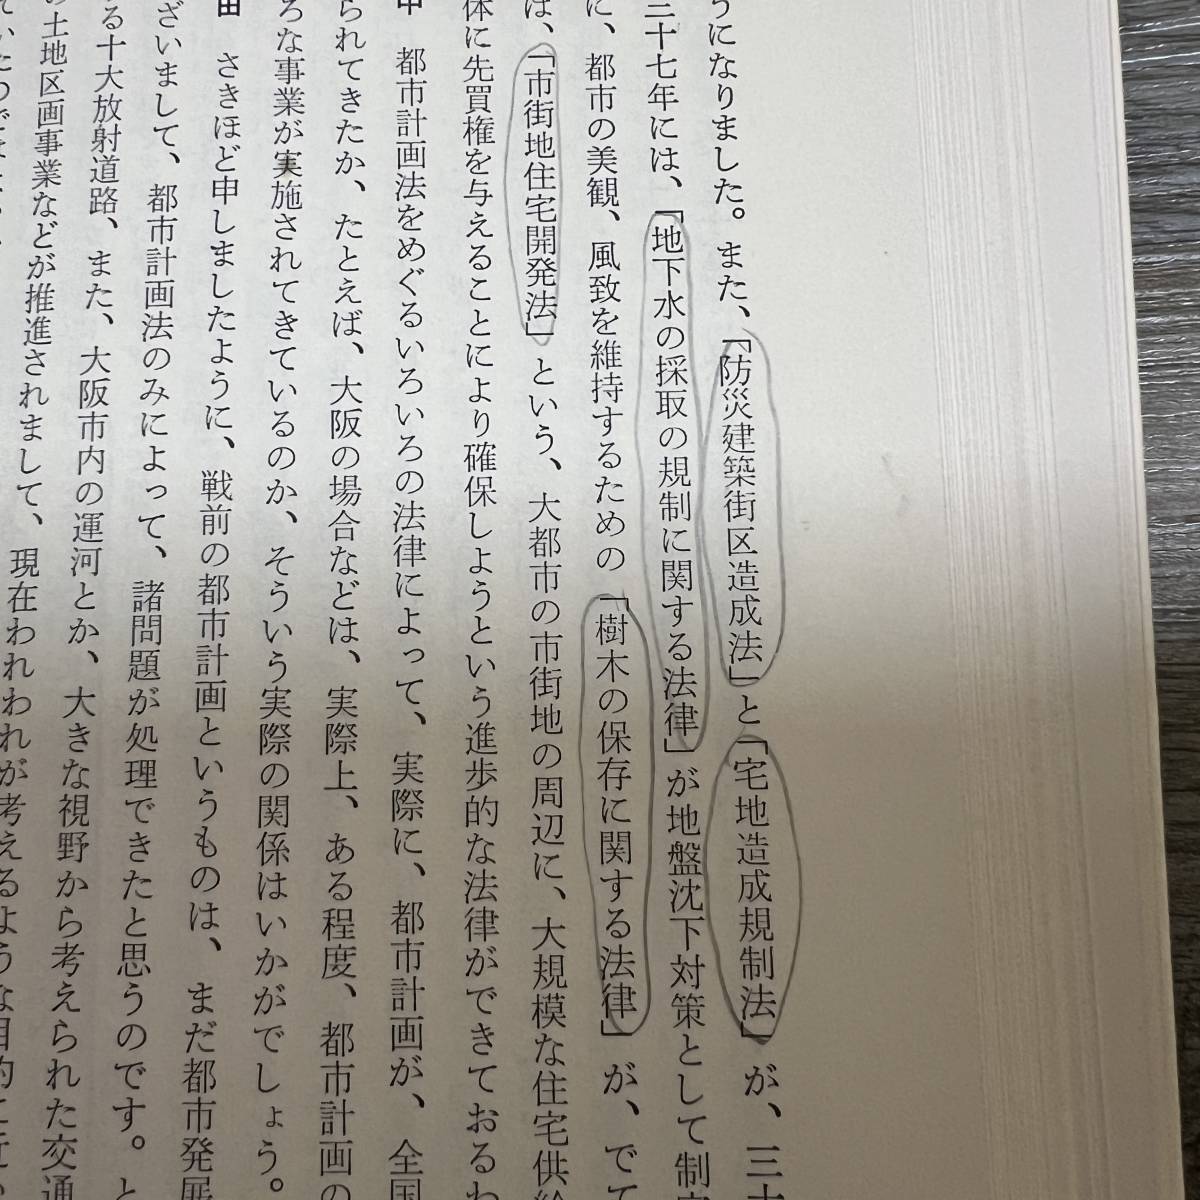 うになりました。また、「防災建築街区造成法」と「宅地造成規制法」が、三十
三十七年には、「地下水の採取の規制に関する法律」が地盤沈下対策として制定
に、都市の美観、風致を維持するための「樹木の保存に関する法律」が、でて
は、「市街地住宅開発法」という、大都市の市街地の周辺に、大規模な住宅供給
体に先買権を与えることにより確保しようという進歩的な法律ができておるわ
中　都市計画法をめぐるいろいろの法律によって、実際に、都市計画が、全国
られてきたか、たとえば、大阪の場合などは、実際上、ある程度、都市計画の
ろな事業が実施されてきているのか、そういう実際の関係はいかがでしょう。
田　さきほど申しましたように、戦前の都市計画というものは、まだ都市発展
ざいまして、都市計画法のみによって、諸問題が処理できたと思うのです。と
る十大放射道路、また、大阪市内の運河とか、大きな視野から考えられた交通
の土地区画事業などが推進されまして、現在われわれが考えるような目的に近い